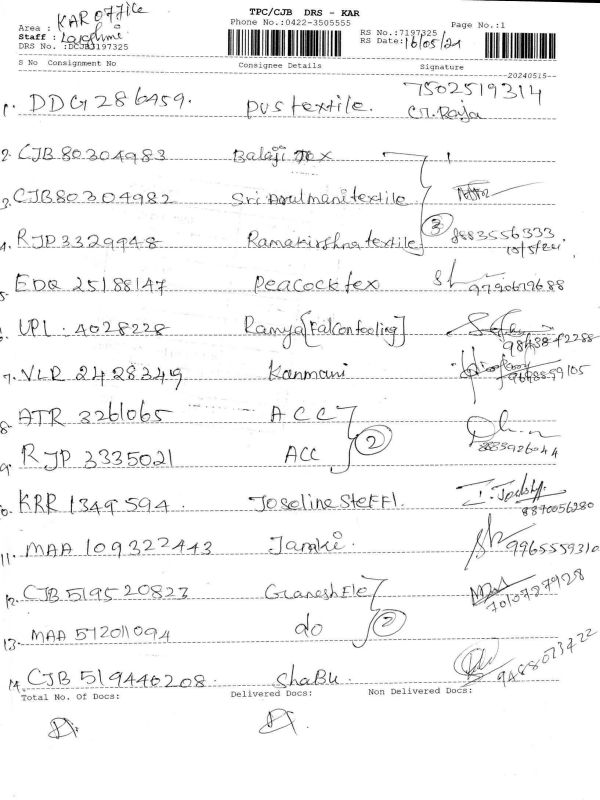 TPC/CJB DRS - KAR
Area : KAR OFFICE
Phone No.:0422-3505555
Page No.:1
Staff : Lakshmi
RS No.:7197325
DRS No. :DCJB3197325
RS Date: 16/05/24
S No Consignment No Consignee Details Signature
--20240515--
1. DDG 286959. pvs textile. 7502519314
G. Raja
2. CJB 80304983 Balaji Tex
3. CJB80304982 Sri Arulmani textile
3
4. RJP 3329948 Ramakirshna textile 8883556333
5. EDQ 25188147 Peacock tex 9790679688
6. UPL . 4028228 Ramya [Falcon tooling]
7. VLR 2428349 Kanmani
8. ATR 3261065 ACC
2
9. RJP 3335021 ACC 8883926044
10. KRR 1349594 Joseline Steffi. 8870056280
11. MAA 109322443 Janaki. 9965559310
12. CJB 519520823 Ganesh Ele 7010727928
2
13. MAA 572011094 do
14. CJB 519446208. ShaBu 9488023422
Total No. Of Docs: Delivered Docs: Non Delivered Docs: